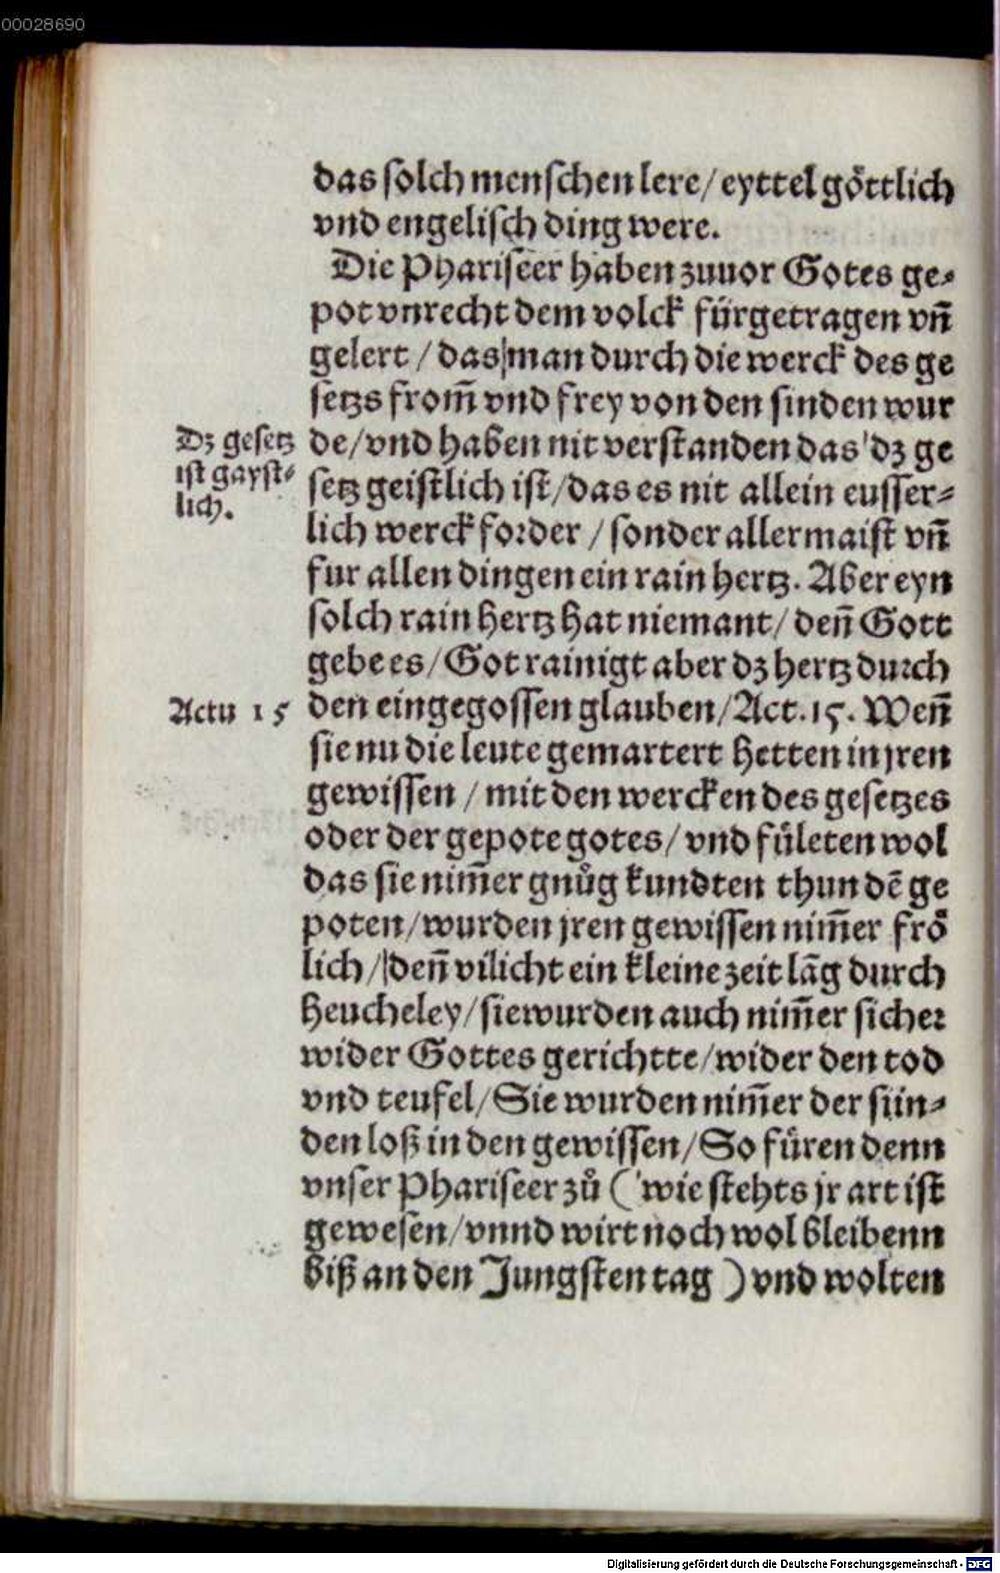 00028690
das solch menschen lere/ eyttel göttlich
vnd engelisch ding were.
Die Phariseer haben zuuor Gotes ge⸗
pot vnrecht dem volck fürgetragen vñ
gelert / das man durch die werck des ge
setzs from̃ vnd frey von den sinden wur
Dz gesetz
ist gayst⸗
lich.
de/vnd haben nit verstanden das dz ge
setz geistlich ist/das es nit allein eusser⸗
lich werck forder / sonder allermaist vñ
fur allen dingen ein rain hertz. Aber eyn
solch rain hertz hat niemant/ deñ Gott
gebe es/Got rainigt aber dz hertz durch
Actu 15
den eingegossen glauben/Act.15. Weñ
sie nu die leute gemartert hetten in jren
gewissen / mit den wercken des gesetzes
oder der gepote gotes/ vnd fůleten wol
das sie nim̃er gnůg kundten thun dē ge
poten/wurden jren gewissen nim̃er frö
lich/ deñ vilicht ein kleine zeit lāg durch
heucheley/sie wurden auch nim̃er sicher
wider Gottes gerichtte/wider den tod
vnd teufel/Sie wurden nim̃er der sün⸗
den loß in den gewissen/So fůren denn
vnser Phariseer zů ( wie stehts jr art ist
gewesen/vnnd wirt noch wol bleibenn
biß an den Jungsten tag ) vnd wolten
Digitalisierung gefördert durch die Deutsche Forschungsgemeinschaft - DFG